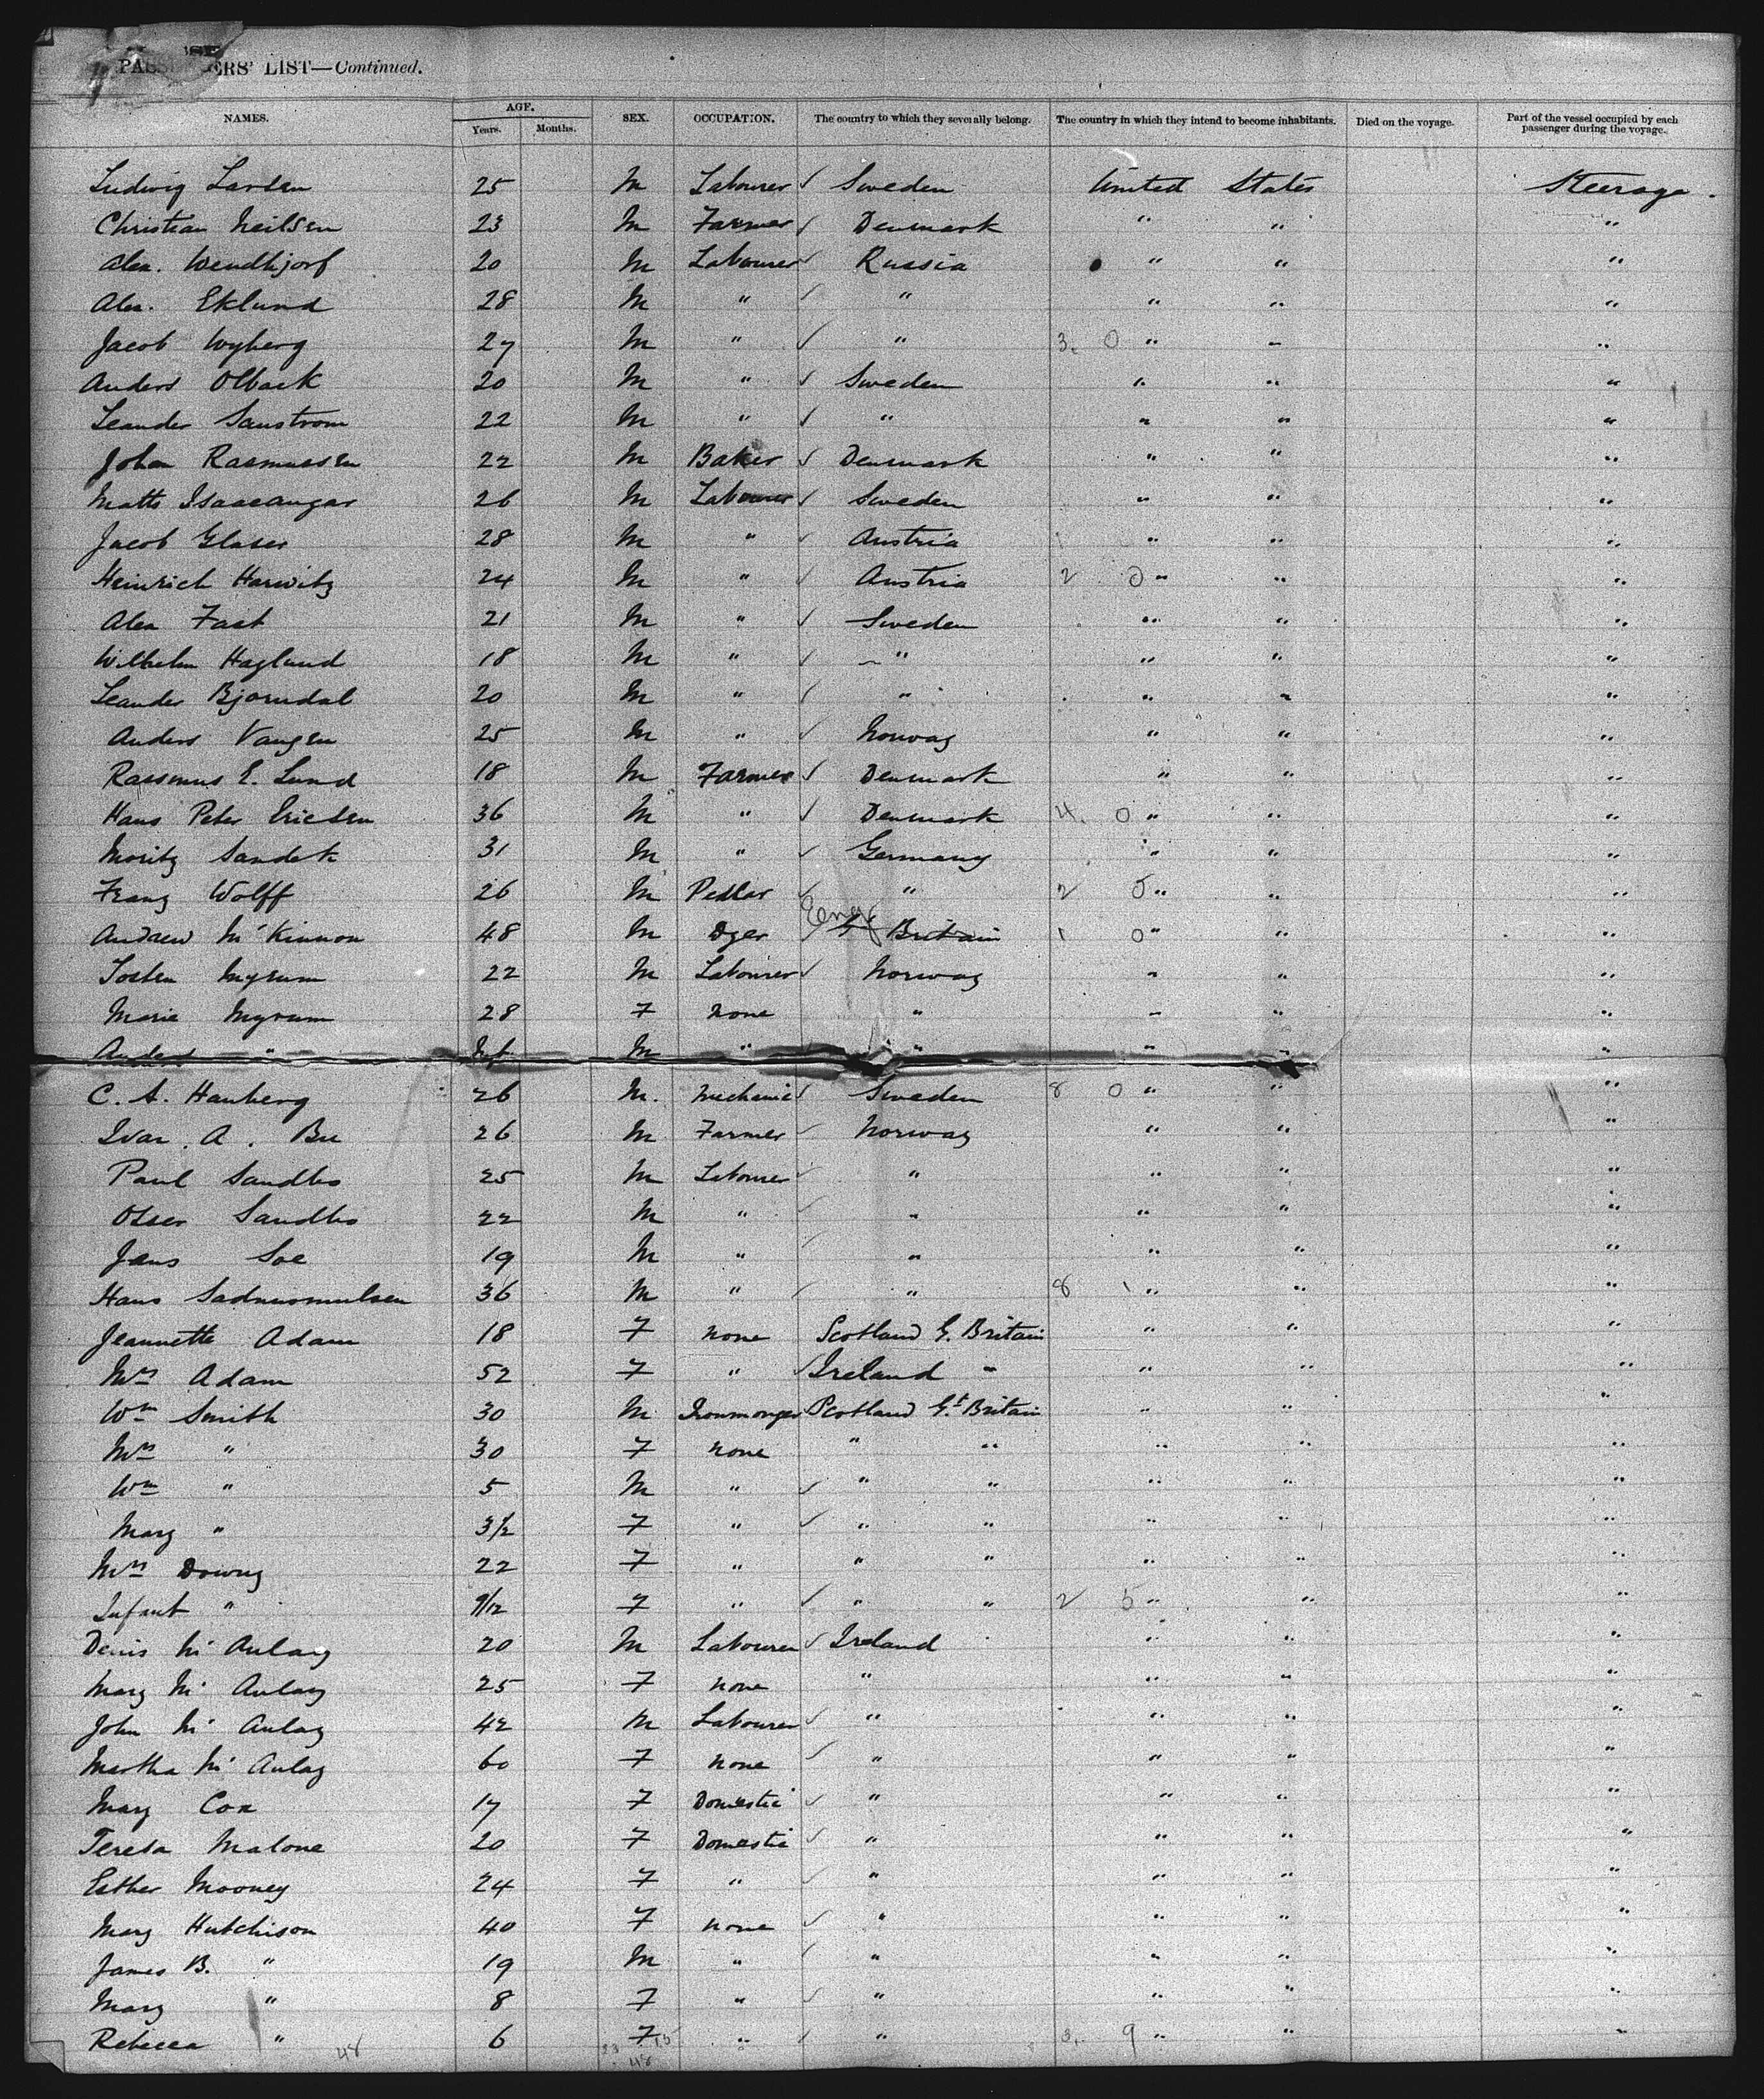 PASSENGERS' LIST—Continued.
NAMES. AGE. Years. Months. SEX. OCCUPATION. The country to which they severally belong. The country in which they intend to become inhabitants. Died on the voyage. Part of the vessel occupied by each passenger during the voyage.
Ludwig Larsen 25 M Labourer Sweden United States Steerage
Christian Neilsen 23 M Farmer Denmark " " "
Alex. Wendhjorf 20 M Labourer Russia " " "
Alex. Eklund 28 M " " " " "
Jacob Wyberg 27 M " " 3. 0 " " "
Anders Olback 20 M " Sweden " " "
Leander Sanstrom 22 M " " " " "
Johan Rasmussen 22 M Baker Denmark " " "
Matts Isaacangar 26 M Labourer Sweden " " "
Jacob Glaser 28 M " Austria " " "
Heinrich Harwitz 24 M " Austria 2 0 " " "
Alex Fast 21 M " Sweden " " "
Wilhelm Haglund 18 M " " " " "
Leander Bjorndal 20 M " " " " "
Anders Vangen 25 M " Norway " " "
Rassmus E. Lund 18 M Farmer Denmark " " "
Hans Peter Ericsen 36 M " Denmark 4. 0 " " "
Moritz Sandek 31 M " Germany " " "
Franz Wolff 26 M Pedlar " 2 5 " " "
Andrew McKinnon 48 M Dyer Britain 1 0 " " "
Myrum 22 M Labourer Norway " " "
Marie Myrum 28 F None " " " "
Anders " Inf M " " " " "
C. A. Hanberg 26 M. Mechanic Sweden 8 0 " " "
Ivar. A. Bu 26 M Farmer Norway " " "
Paul Sandbo 25 M Labourer " " " "
Sandbo 22 M " " " " "
Jens Soe 19 M " " " " "
Hans 36 M " " 8 1 " " "
Jeannette Adam 18 F None Scotland G. Britain " " "
Mrs Adam 52 F " Ireland " " " "
Wm Smith 30 M Ironmonger Scotland Gt. Britain " " "
Mrs " 30 F None " " " " "
Wm " 5 M " " " " " "
Mary " 3½ F " " " " " "
Mrs Downy 22 F " " " " " "
Infant " 9/12 F " " " 2 5 " " "
Denis McAulay 20 M Labourer Ireland " " "
Mary McAulay 25 F None " " " "
John McAulay 42 M Labourer " " " "
Martha McAulay 60 F None " " " "
Mary Cox 17 F Domestic " " " "
Teresa Malone 20 F Domestic " " " "
Esther Mooney 24 F " " " " "
Mary Hutchison 40 F None " " " "
James B. " 19 M " " " " "
Mary " 8 F " " " " "
Rebecca " 6 F " " 3. 9 " " "
48 33 15
48